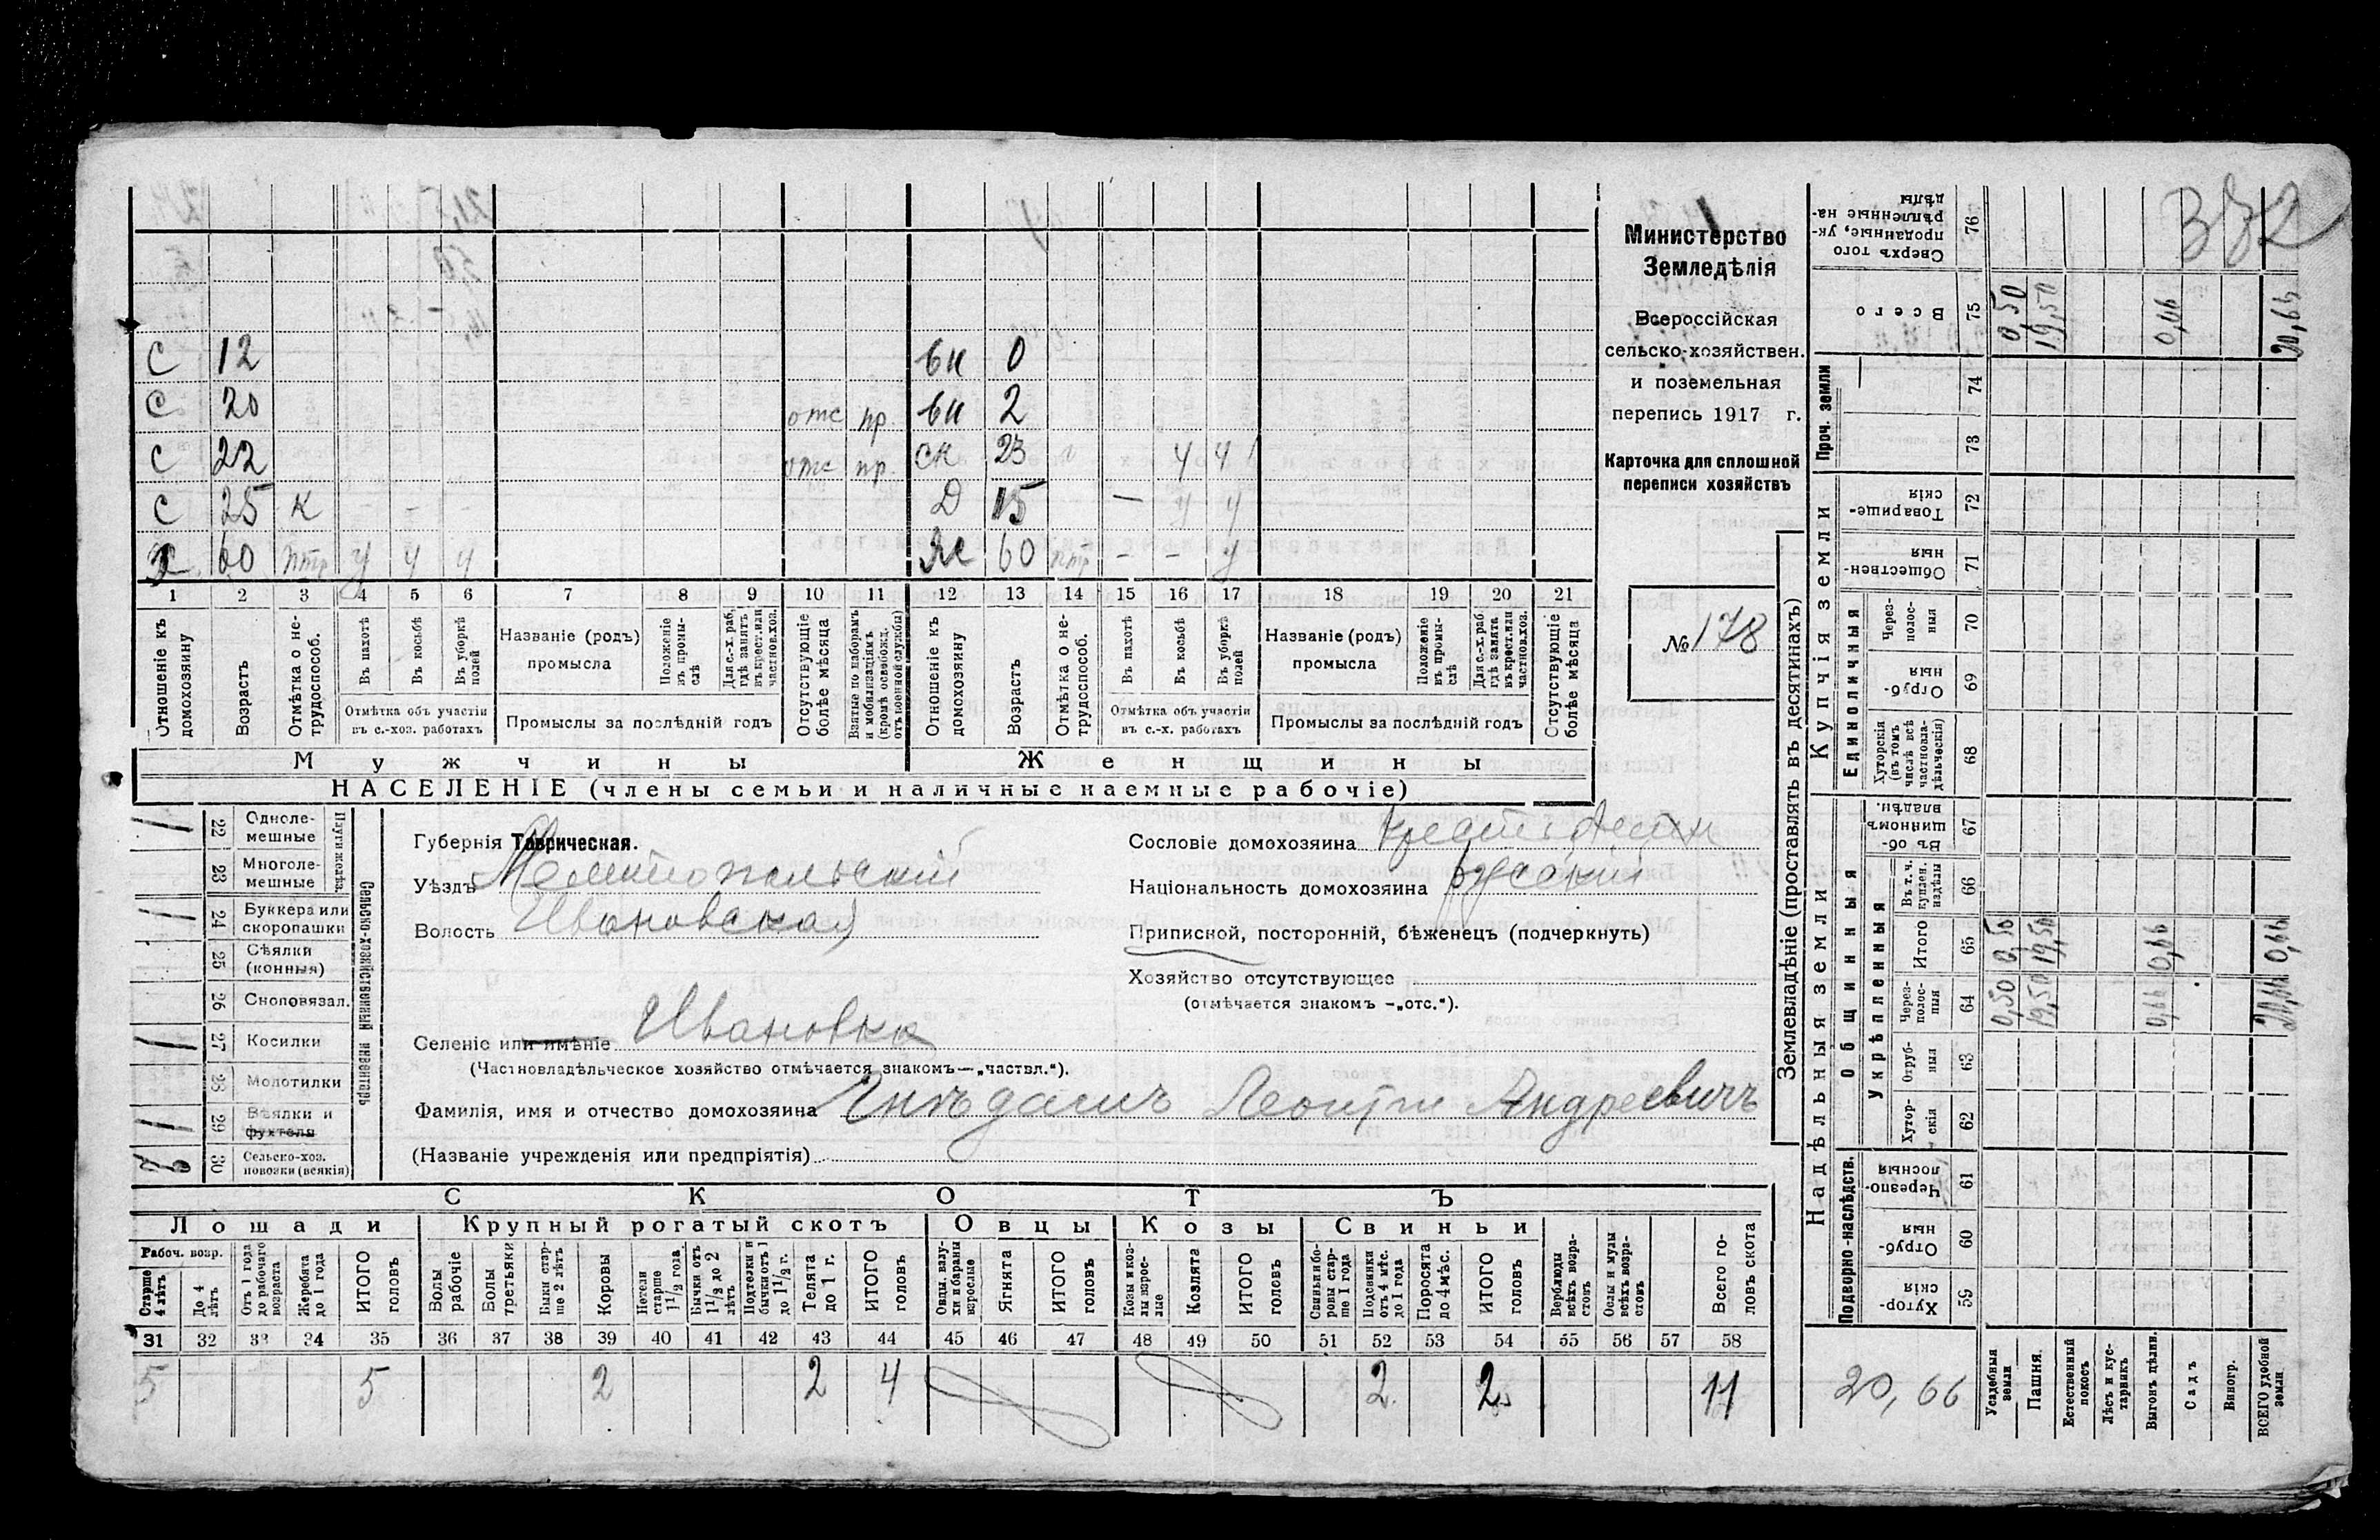 382
Министерство
Земледѣлія
Всероссійская
сельско-хозяйствен.
и поземельная
перепись 1917 г.
Карточка для сплошной
переписи хозяйствъ
№ 178
С 12 вн 0
С 20 отс пр. вн 2
С 22 отс пр. ск 23 ч ч
С 25 к - - - Д 15 — ч ч
Х 60 птр ч ч ч Ж 60 птр - - ч
1 2 3 4 5 6 7 8 9 10 11 12 13 14 15 16 17 18 19 20 21
Отношеніе къ домохозяину
Возрастъ
Отмѣтка о не-трудоспособ.
Въ пахотѣ
Въ косьбѣ
Въ уборкѣ полей
Отмѣтка объ участіи
въ с.-хоз. работахъ
Названіе (родъ)
промысла
Положеніе въ промы-слѣ
Для с.-х. раб. гдѣ занятъ въ крест. или частнов. хоз.
Промыслы за послѣдній годъ
Отсутствующіе болѣе мѣсяца
Взятые по наборамъ и мобилизаціямъ (кромѣ освобожд. отъ военной службы)
Отношеніе къ домохозяину
Возрастъ
Отмѣтка о не-трудоспособ.
Въ пахотѣ
Въ косьбѣ
Въ уборкѣ полей
Отмѣтка объ участіи
въ с.-х. работахъ
Названіе (родъ)
промысла
Положеніе въ промы-слѣ
Для с.-х. раб. гдѣ занята въ крест. или частнов. хоз.
Промыслы за послѣдній годъ
Отсутствующіе болѣе мѣсяца
Мужчины Женщины
НАСЕЛЕНІЕ (члены семьи и наличные наемные рабочіе)
Сельско-хозяйственный инвентарь
Плуги желѣз.
1 22 Одноле-мешные
23 Многоле-мешные
1 24 Буккера или скоропашки
25 Сѣялки (конныя)
26 Сноповязал.
1 27 Косилки
28 Молотилки
1 29 Вѣялки и фухтеля
2 30 Сельско-хоз. повозки (всякія)
Губернія Таврическая.
Уѣздъ Мелитопольскій
Волость Ивановская
Сословіе домохозяина
Національность домохозяина русскій
Приписной, посторонній, бѣженецъ (подчеркнуть)
Хозяйство отсутствующее
(отмѣчается знакомъ —„отс.“).
Селеніе или имѣніе Ивановка
(Частновладѣльческое хозяйство отмѣчается знакомъ—„частвл.“).
Фамилія, имя и отчество домохозяина Андреевичъ
(Названіе учрежденія или предпріятія)
СКОТЪ
Лошади Крупный рогатый скотъ Овцы Козы Свиньи
Рабоч. возр.
Старше 4 лѣтъ
До 4 лѣтъ
Отъ 1 года до рабочаго возраста
Жеребята до 1 года
ИТОГО головъ
Волы рабочіе
Волы третьяки
Быки стар-ше 2 лѣтъ
Коровы
Нетели старше 1 1/2 года
Бычки отъ 1 1/2 до 2 лѣтъ
Подтелки и бычки отъ 1 до 1 1/2 г.
Телята до 1 г.
ИТОГО головъ
Овцы, валу-хи и бараны взрослые
Ягнята
ИТОГО головъ
Козы и коз-лы взрос-лые
Козлята
ИТОГО головъ
Свиньи и бо-ровы стар-ше 1 года
Подсвинки отъ 4 мѣс. до 1 года
Поросята до 4 мѣс.
ИТОГО головъ
Верблюды всѣхъ возра-стовъ
Ослы и мулы всѣхъ возра-стовъ
Всего го-ловъ скота
31 32 33 34 35 36 37 38 39 40 41 42 43 44 45 46 47 48 49 50 51 52 53 54 55 56 57 58
5 5 2 2 4 2 2 11
Землевладѣніе (проставлять въ десятинахъ)
Надѣльныя земли
Купчія земли
Проч. земли
Подворно-наслѣдств.
Общинныя
Укрѣпленныя
Единоличныя
Сверхъ того проданные, ук-рѣпленные на-дѣлы 76
Всего 75 0,50 19,50 0,66 20,66
74
73
Товарище-скія 72
Обществен-ныя 71
Через-полос-ныя 70
Отруб-ныя 69
Хуторскія (въ томъ числѣ всѣ частновла-дѣльческія) 68
Въ об-щинномъ владѣн. 67
Въ т. ч. куплен. надѣлы 66
Итого 65 0,50 19,50 0,66 0,66
Через-полос-ныя 64 0,50 19,50 0,66 20,66
Отруб-ныя 63
Хутор-скія 62
Черезпо-лосныя 61
Отруб-ныя 60
Хутор-скія 59
20,66
Усадебныя земли
Пашня.
Естественный покосъ
Лѣсъ и кус-тарникъ
Выгонъ дѣлин.
Садъ
Виногр.
ВСЕГО удобной земли